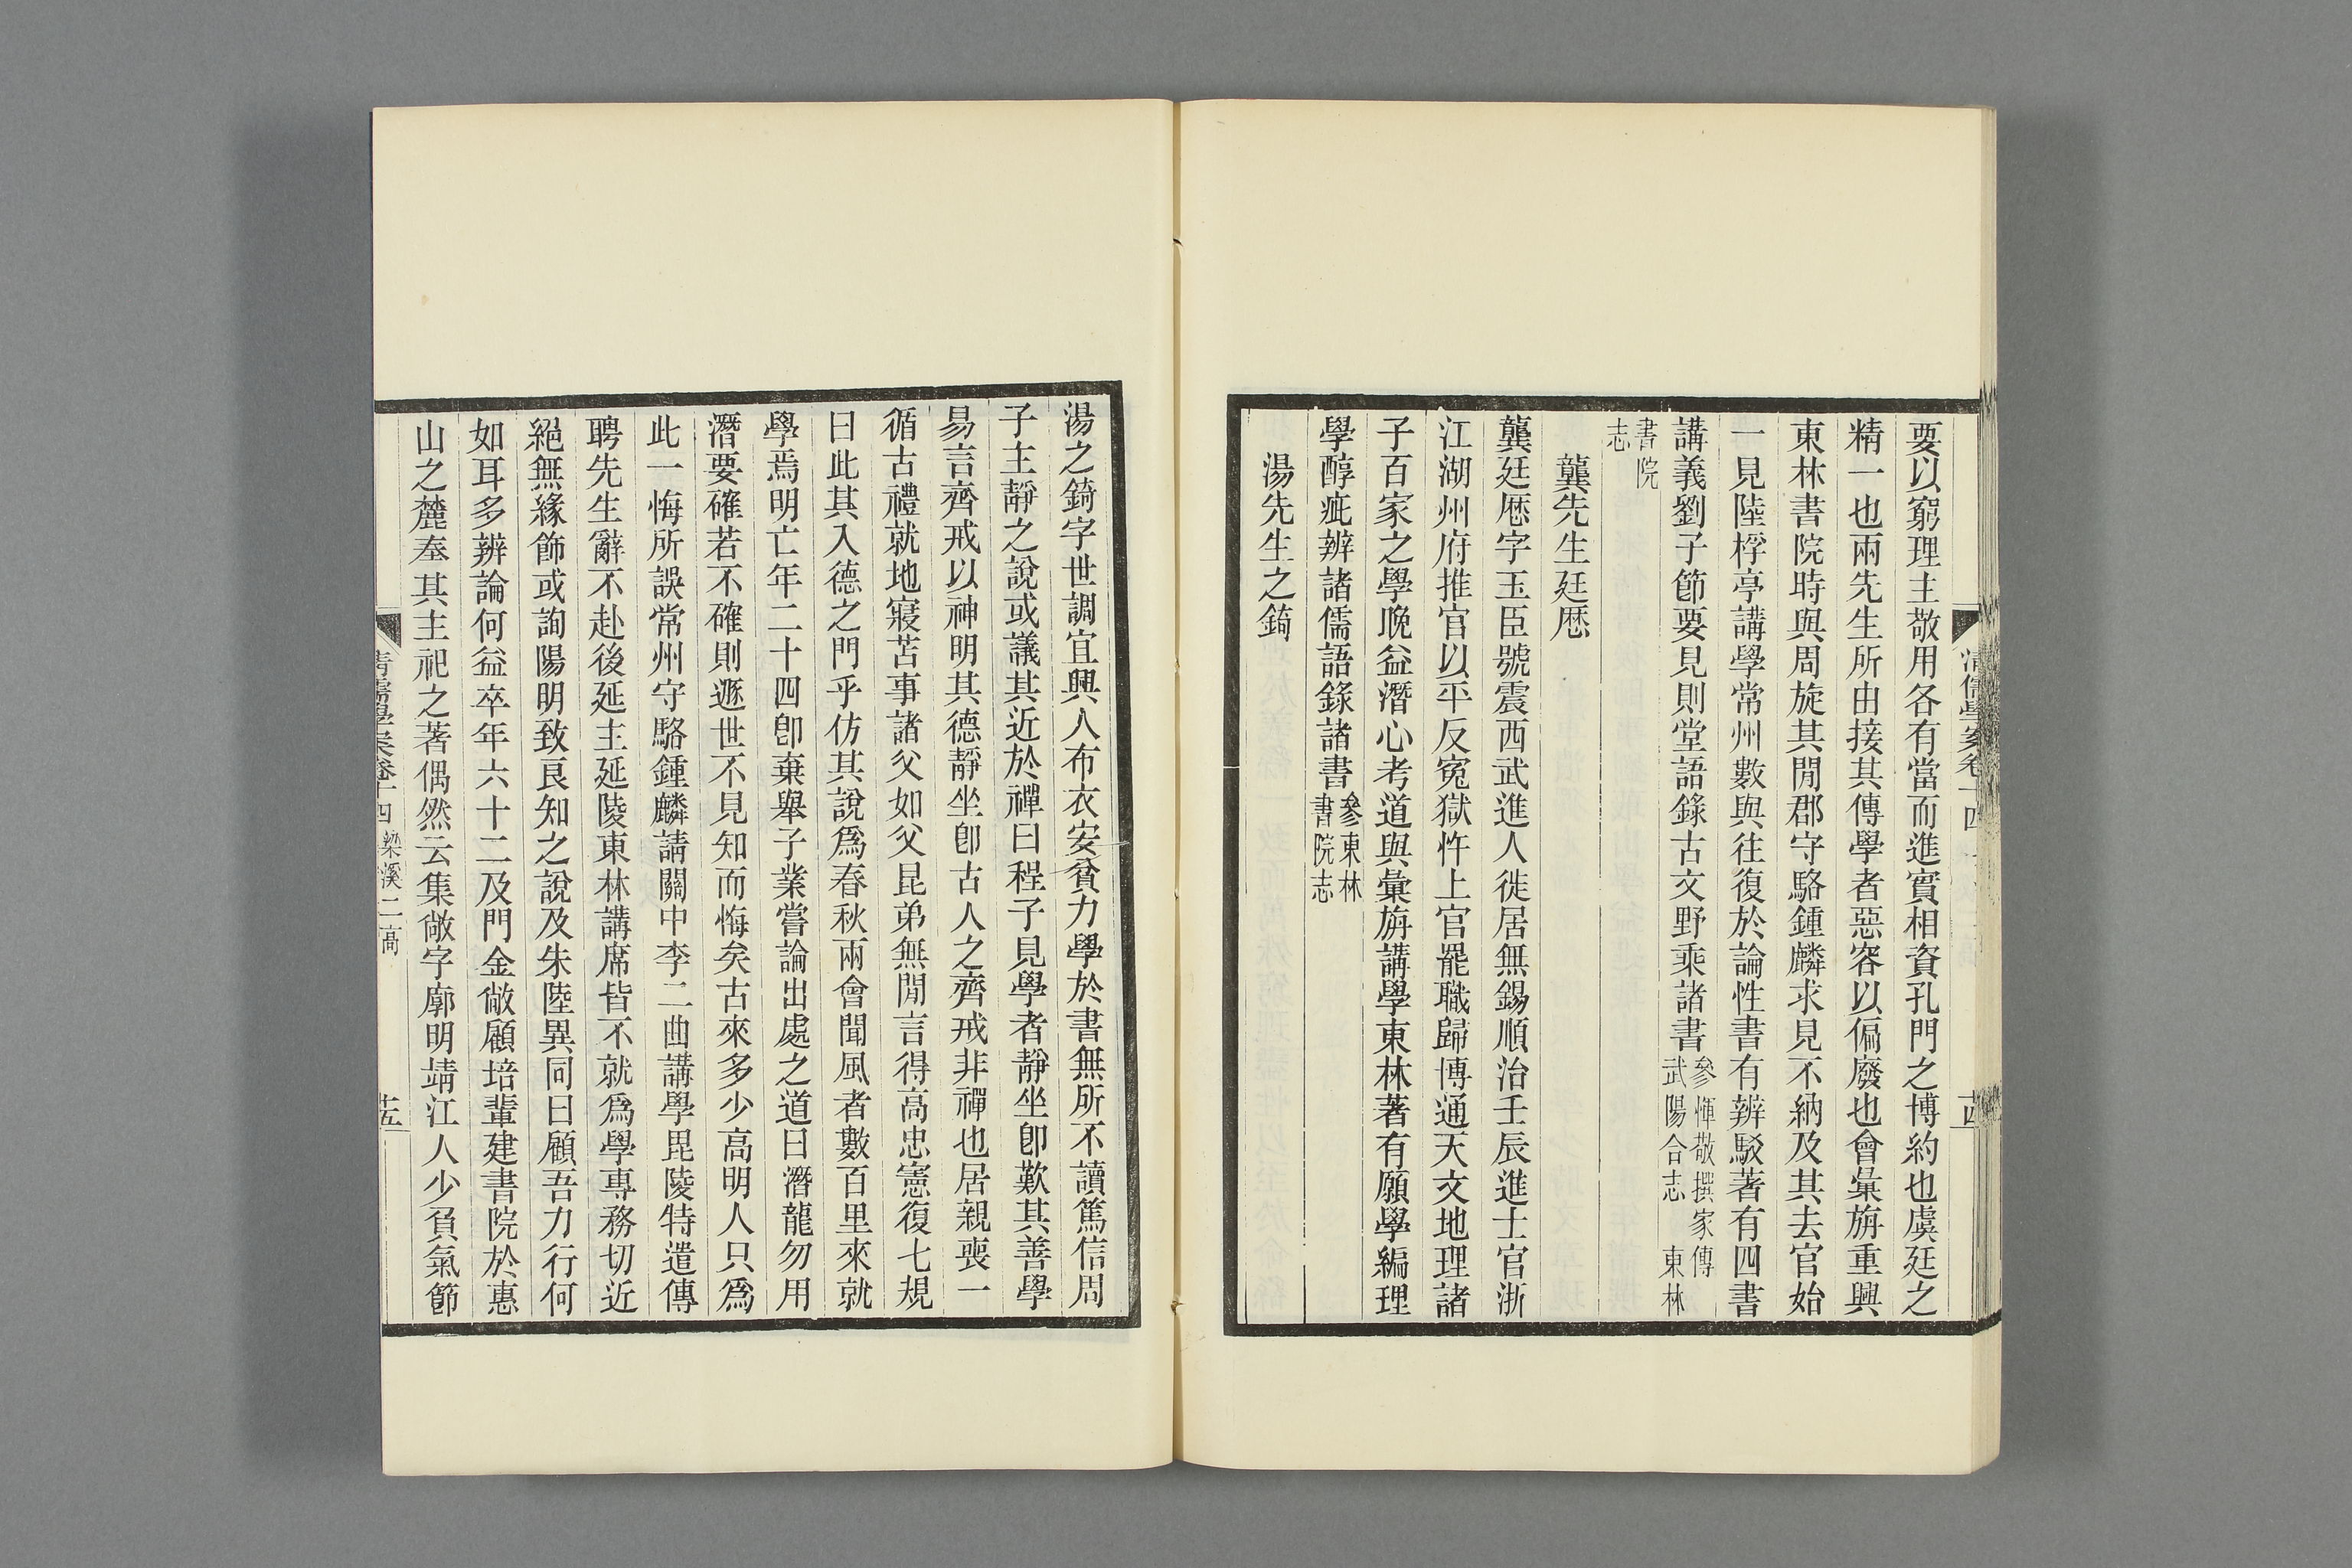 要以窮理主敬用各有當而進實相資孔門之博約也虞廷之
精一也兩先生所由接其傳學者惡容以偏廢也會彙旃重興
東林書院時與周旋其閒郡守駱鍾麟求見不納及其去官始
一見陸桴亭講學常州數與往復於論性書有辨駁著有四書
講義劉子節要見則堂語錄古文野乘諸書參惲敬撰家傳 武陽合志 東林
書院志
龔先生廷歷
龔廷歷字玉臣號震西武進人徙居無錫順治壬辰進士官浙
江湖州府推官以平反寃獄忤上官罷職歸博通天文地理諸
子百家之學晚益潛心考道與彙旃講學東林著有願學編理
學醇疵辨諸儒語錄諸書參東林書院志
湯先生之錡
湯之錡字世調宜興人布衣安貧力學於書無所不讀篤信周
子主靜之說或議其近於禪曰程子見學者靜坐卽歎其善學
易言齊戒以神明其德靜坐卽古人之齊戒非禪也居親喪一
循古禮就地寢苫事諸父如父昆弟無閒言得高忠憲復七規
曰此其入德之門乎仿其說爲春秋兩會聞風者數百里來就
學焉明亡年二十四卽棄舉子業嘗論出處之道曰潛龍勿用
潛要確若不確則遯世不見知而悔矣古來多少高明人只爲
此一悔所誤常州守駱鍾麟請關中李二曲講學毘陵特遣傳
聘先生辭不赴後延主延陵東林講席皆不就爲學專務切近
絕無緣飾或詢陽明致良知之說及朱陸異同曰顧吾力行何
如耳多辨論何益卒年六十二及門金敞顧培輩建書院於惠
山之麓奉其主祀之著偶然云集敞字廓明靖江人少負氣節
清儒學案卷十四 梁溪二高
十五